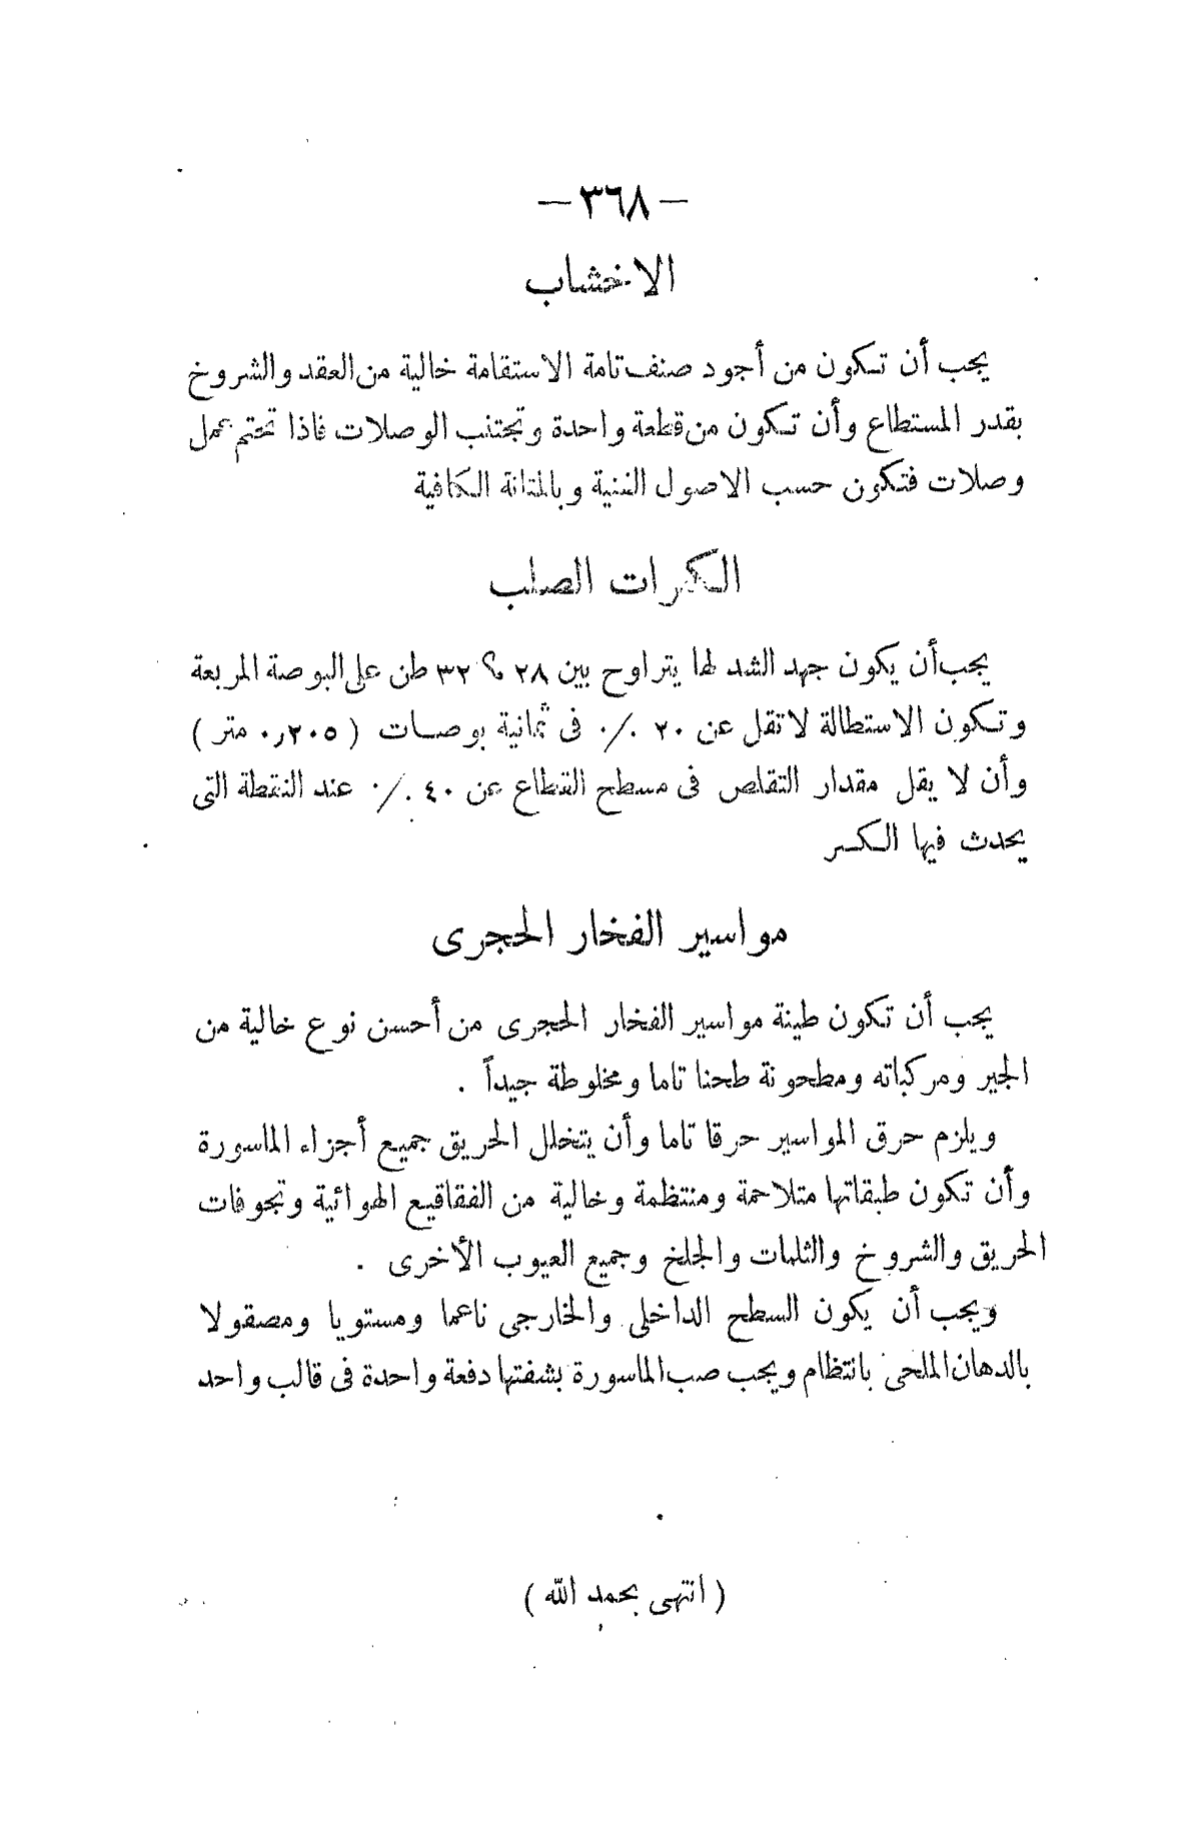 — ٣٦٨ —
الاخشاب
يجب أن تكون من أجود صنف تامة الاستقامة خالية من العقد والشروخ
بقدر المستطاع وأن تكون من قطعة واحدة وتجتنب الوصلات فاذا تحتم عمل
وصلات فتكون حسب الاصول الفنية وبالمتانة الكافية
الكمرات الصلب
يجب أن يكون جهد الشد لها يتراوح بين ٢٨ ؟ ٣٢ طن على البوصة المربعة
وتكون الاستطالة لا تقل عن ٢٠ ٪ فى ثمانية بوصات ( ٠٫٢٠٥ متر )
وأن لا يقل مقدار التقلص فى مسطح القطاع عن ٤٠ ٪ عند النقطة التى
يحدث فيها الكسر
مواسير الفخار الحجرى
يجب أن تكون طينة مواسير الفخار الحجرى من أحسن نوع خالية من
الجير ومركباته ومطحونة طحنا تاما ومخلوطة جيداً .
ويلزم حرق المواسير حرقا تاما وأن يتخلل الحريق جميع أجزاء الماسورة
وأن تكون طبقاتها متلاحمة ومنتظمة وخالية من الفقاقيع الهوائية وتجوفات
الحريق والشروخ والثلمات والجلخ وجميع العيوب الأخرى .
ويجب أن يكون السطح الداخلى والخارجى ناعما ومستويا ومصقولا
بالدهان الملحى بانتظام ويجب صب الماسورة بشفتها دفعة واحدة فى قالب واحد
( انتهى بحمد الله )